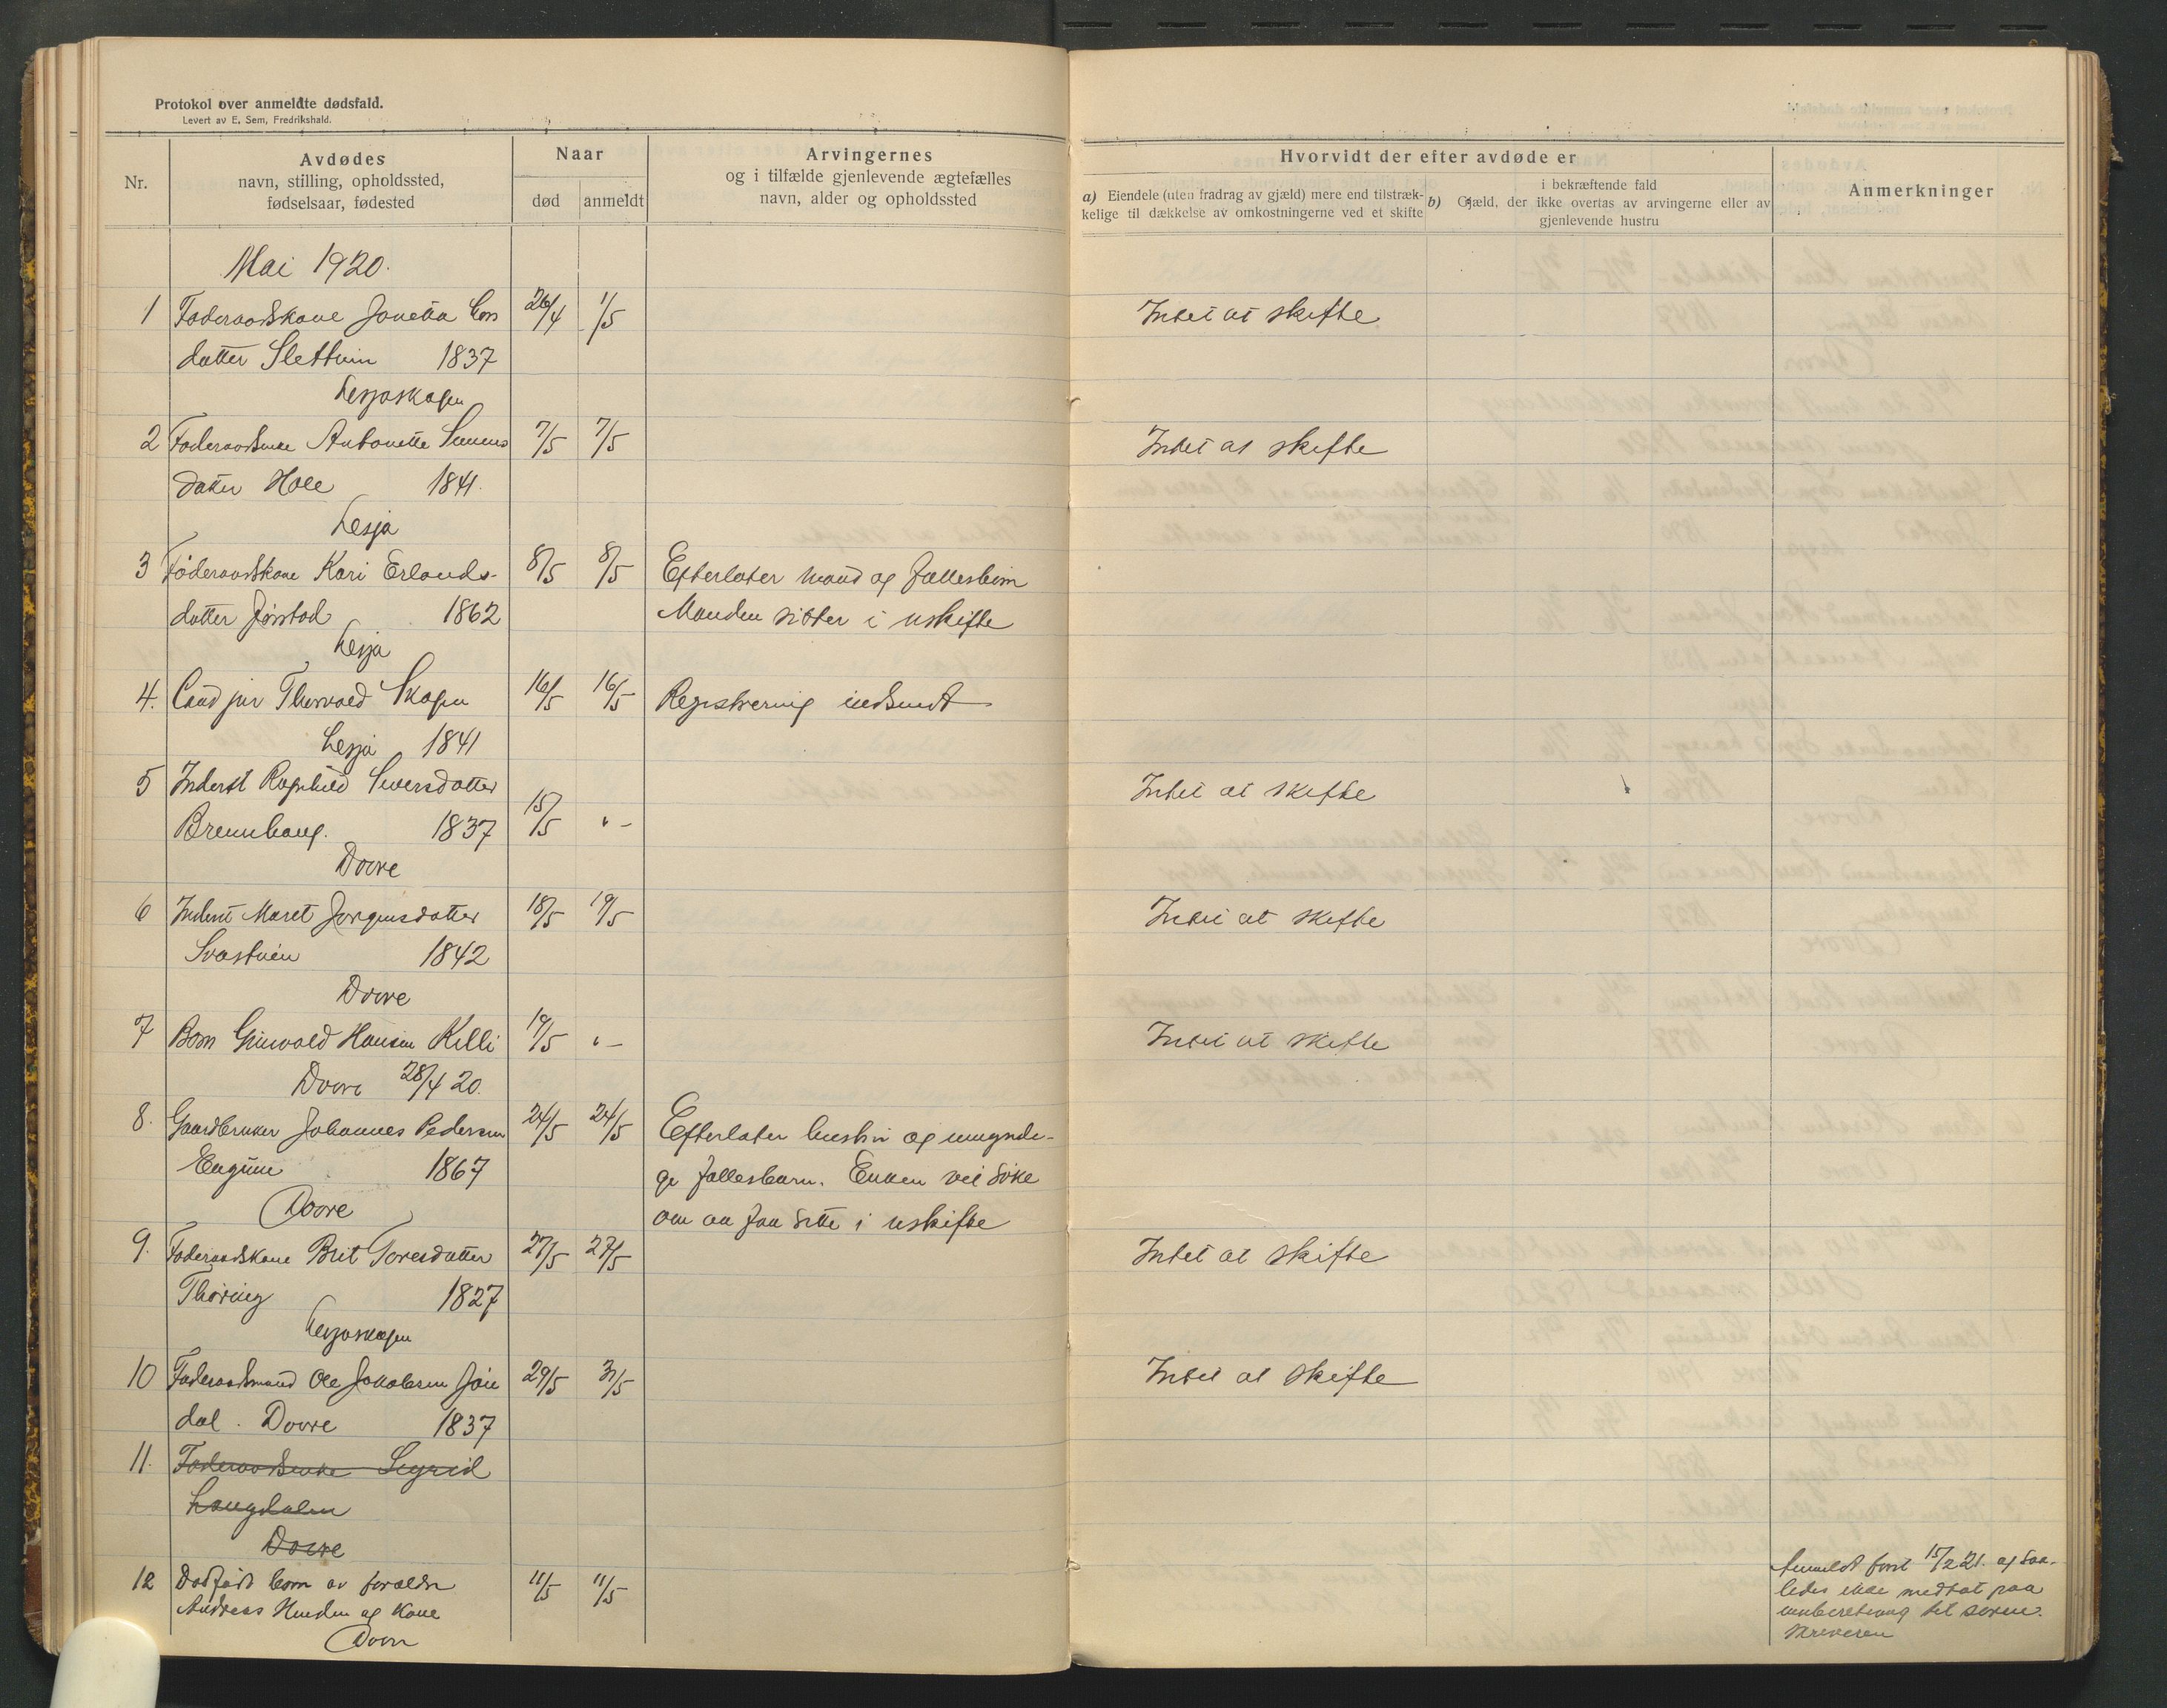 Protokol over anmeldte dødsfald.
Levert av E. Sem, Fredrikshald.
Nr.
Avdødes
navn, stilling, opholdssted,
fødselsaar, fødested
Naar
død
anmeldt
Arvingernes
og i tilfælde gjenlevende ægtefælles
navn, alder og opholdssted
Hvorvidt der efter avdøde er
a) Eiendele (uten fradrag av gjæld) mere end tilstræk-
kelige til dækkelse av omkostningerne ved et skifte
i bekræftende fald
b) Gjæld, der ikke overtas av arvingerne eller av
gjenlevende hustru
Anmerkninger
Mai 1920.
1 Føderaadskone Janetta Lars 26/4 1/5 Intet at skifte
datter Slettvin 1837
Lesjaskogen
2 Føderaadsenke Antonette 7/5 7/5 Intet at skifte
datter Hole 1841.
Lesja
3 Føderaadskone Kari Erlands- 8/5 8/5 Efterlater mand og fællesbørn
datter Jørstad 1862 Manden sitter i uskifte
Lesja
4. Cand jur Thorvald Skogen 16/5 16/5 Registrering indsendt
Lesja 1841
5 Inderst Ragnhild Sversdatter 15/5 " - Intet at skifte
Brennhaug. 1837
Dovre
6 Inderst Maret Jørgensdatter 18/5 19/5 Intet at skifte
1842
Dovre
7 Barn Hansen Killi 19/5 " - Intet at skifte
Dovre 28/4 20.
8. Gaardbruker Johannes Pedersen 24/5 24/5 Efterlater hustru og umyndi-
Engum 1867 ge fællesbarn. Enken vil søke
Dovre om aa faa sitte i uskifte
9. Føderaadskone Brit Toresdatter 27/5 27/5 Intet at skifte
Thøring 1827
Lesjaskogen
10 Føderaadsmand Ole Jakobsen Jøn 29/5 31/5 Intet at skifte
dal. Dovre 1837
11. Føderaadsenke Sigrid
Langdalen
Dovre
12 Dødfødt barn av forældre 11/5 11/5 Anmeldt først 15/2 21. og saa-
Andreas og kone ledes ikke medtat paa
Dovre innberetning til soren-
skriveren